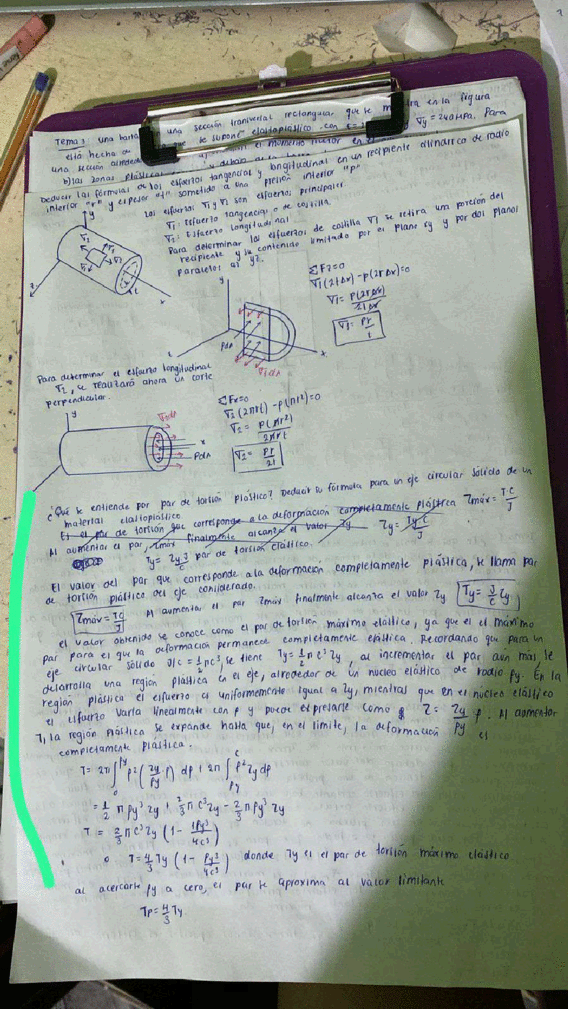 Tema 3: una barra una sección transversal rectangular que se muestra en la figura
está hecha de se supone elastoplástico con σy = 240 MPa. Para
una sección el momento flector en el
b) las zonas plásticas
Deducir las fórmulas de los esfuerzos tangencial y longitudinal en un recipiente cilíndrico de radio
interior "r" y espesor "t" sometido a una presión interior "p"
Los esfuerzos σ1 y σ2 son esfuerzos principales.
σ1: Esfuerzo tangencial o de costilla.
σ2: Esfuerzo longitudinal.
Para determinar los esfuerzos de costilla σ1 se retira una porción del
recipiente y su contenido limitado por el plano xy y por dos planos
paralelos al yz.
y
σ1
σ2
t
z
x
ΣFz=0
σ1(2tΔx)-p(2rΔx)=0
σ1= p(2rΔx)
2tΔx
σ1= pr
t
y
z
x
PdA
σ1dA
Para determinar el esfuerzo longitudinal
σ2, se realizará ahora un corte
perpendicular.
ΣFx=0
σ2(2πrt)-p(πr²)=0
σ2= p(πr²)
2πrt
σ2= pr
2t
y
σ2dA
x
PdA
¿Qué se entiende por par de torsión plástico? Deducir la fórmula para un eje circular sólido de un
material elastoplástico
Es el par de torsión que corresponde a la deformación completamente plástica τmáx= Tc/J
Al aumentar el par, τmáx finalmente alcanza el valor τy τy= Ty c/J
Ty= τy J/c par de torsión elástico.
El valor del par que corresponde a la deformación completamente plástica, se llama par
de torsión plástico del eje considerado.
τmáx= Tc/J Al aumentar el par τmáx finalmente alcanza el valor τy Ty= J/c τy
el valor obtenido se conoce como el par de torsión máximo elástico, ya que es el máximo
par para el que la deformación permanece completamente elástica. Recordando que para un
eje circular sólido J/c = ½πc³, se tiene Ty= ½πc³τy, al incrementar el par aún más, se
desarrolla una región plástica en el eje, alrededor de un núcleo elástico de radio ρy. En la
región plástica el esfuerzo es uniformemente igual a τy, mientras que en el núcleo elástico
el esfuerzo varía linealmente con ρ y puede expresarse como τ= τy/ρy ρ. Al aumentar
T, la región plástica se expande hasta que, en el límite, la deformación es
completamente plástica.
T= 2π∫₀^ρy ρ²(τy/ρy ρ) dρ + 2π∫ρy^c ρ²τy dρ
= ½πρy³τy + ⅔πc³τy - ⅔πρy³τy
T = ⅔πc³τy (1 - 1ρy³/4c³)
o T= 4/3 Ty (1 - ρy³/4c³) donde Ty es el par de torsión máximo elástico
al acercarse ρy a cero, el par se aproxima al valor limitante
Tp= 4/3 Ty